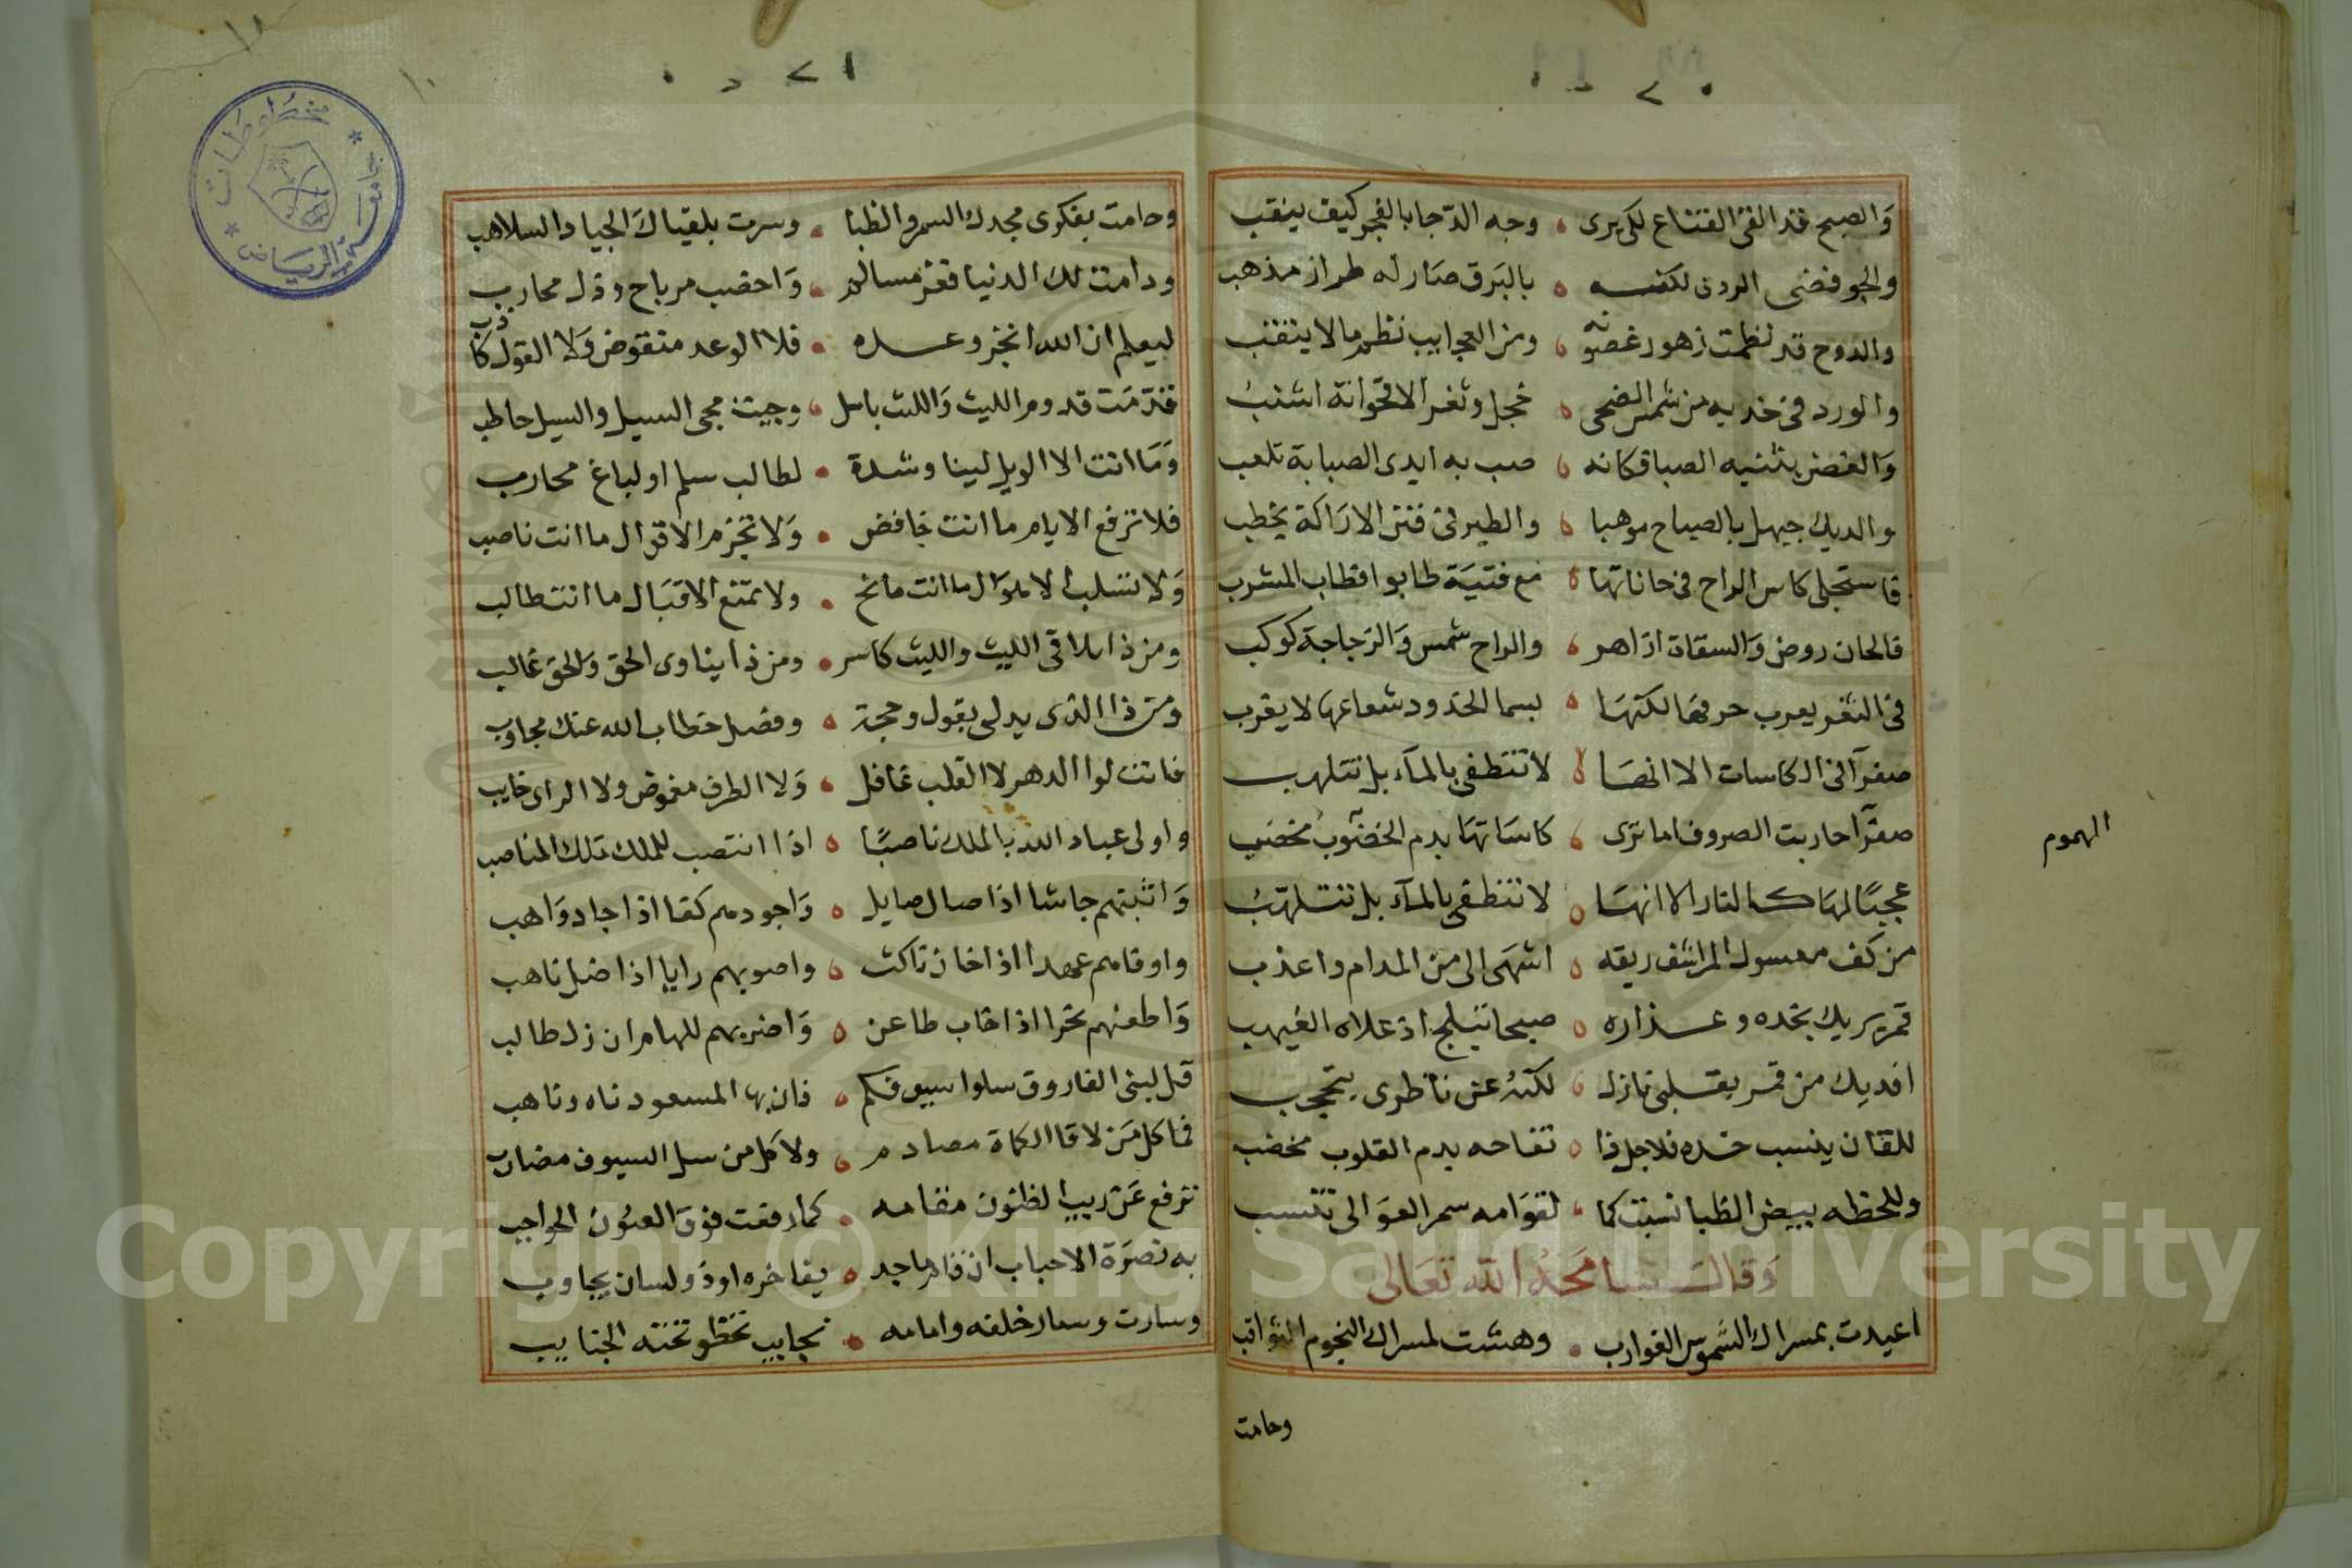 والصبح قد القى القناع لكى يرى وجه الدجا بالفجر كيف ينقب
والجو فضى الردى لكنه بالبرق صار له طراز مذهب
والدوح قد نظمت زهور غصونه ومن العجايب نظم مالا يثقب
والورد فى خديه من شمس الضحى خجل وثغر الاقحوانة اشنب
والغصن يثنيه الصبا فكانه صب به ايدى الصبابة تلعب
والديك حيهل بالصياح موهبا والطير فى فنن الاراكة يخطب
فاستجلى كاس الراح فى حاناتها مع فتية طابوا فطاب المشرب
فالحان روض والسقاة ازاهر والراح شمس والزجاجة كوكب
فى الثغر يعرب حرفها لكنها بسما الخدود شعاعها لا يقرب
صفرآ فى الكاسات الا انها لا تنتطفى بالمآء بل تتلهب
صفرآ حاربت الصروف اما ترى كاساتها بدم الخضوب مخضب
عجبًا لها كالنار الا انها لا تنطفى بالمآء بل تتلهب
من كف معسول المراشف ريقه اشهى الى من المدام واعذب
قمر يريك بخده وعذاره صبحا تبلج اذ علاه الغيهب
افديك من قمر بقلبى نازل لكنه عن ناظرى يتحجب
للقان ينسب خده فلاجل ذا تفاحه بدم القلوب مخضب
وللحظه ببيض الظبا نسبت كما لقوامه سمر العوالى تنسب
وقال سامحه الله تعالى
اعيدت بمسراك الشموس الغوارب وهشت لمسراك النجوم الثواقب
وحامت
الهموم
وحامت بفكوى مجدك السمر والظبا وسرت بلقياك الجياد السلاهب
ودامت لك الدنيا فعز مسالم واخصب مرباح وذل محارب
ليعلم ان الله انجز وعده فلا الوعد منقوض ولا القول كاذب
قدمت قدوم الليث والليث باسل وجيت مجى السيل والسيل حاطب
وما انت الا الويل لينا وشدة لطالب سلم او لباغ محارب
فلا ترفع الايام ما انت خافض ولا تجزم الاقوال ما انت ناصب
ولا تسلب الاموال ما انت مانح ولا تمنع الاقبال ما انت طالب
ومن ذا يلاقى الليث والليث كاسر ومن ذا يناوى الحق والحق غالب
ومن ذا الذى يدلى بقول وحجة وفصل خطاب الله عنك مجاوب
فانت لوا الدهر لا القلب غافل ولا الطرف مغموض ولا الراى خايب
واولى عباد الله بالملك ناصبًا اذا انتصب للملك تلك المناصب
واثبتهم جاشا اذا صال صايل واجودهم كفا اذا جاد واهب
واوفاهم عهدا اذا خان ناكث واصوبهم رايا اذا ضل ناهب
واطعنهم نحرا اذا خاب طاعن واضربهم للهام ان زل طالب
قل لبنى الفاروق سلوا سيوفكم فان بها المسعود ناه وناهب
فما كل من لاقا الكماة مصادم ولا كل من سل السيوف مضارب
ترفع عن ريب الظنون مقامه كما رفعت فوق العيون الحواجب
به نصرة الاحباب ان قام ماجد يفاخره او ذو لسان يجاوب
وسارت وسار خلفه وامامه نجايب تخطو تحته الجنايب
مخطوطات
جامعة الرياض
Copyright © King Saud University